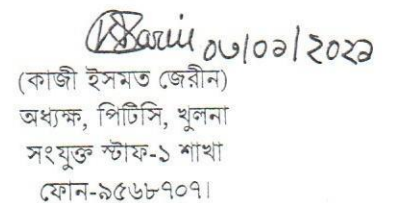 ০৬/০৯/২০২১
(কাজী ইসমত জেরীন)
অধ্যক্ষ, পিটিসি, খুলনা
সংযুক্ত স্টাফ-১ শাখা
ফোন-৯৫৬৮৭০৭।